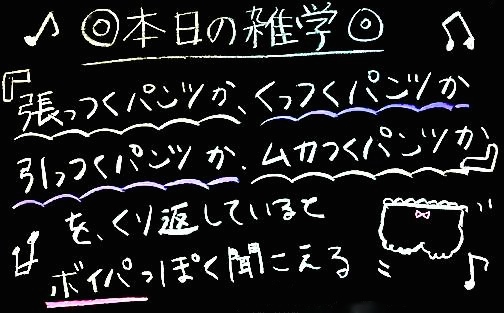 ◎本日の雑学◎
『張っつくパンツか、くっつくパンツか
引っつくパンツか、ムカつくパンツか』
を、くり返していると
ボイパっぽく聞こえる